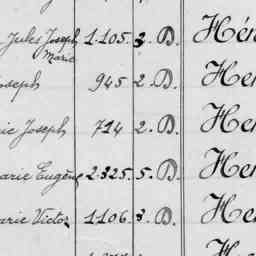 Jules Joseph Marie 1.105. 3. D. Hén
Joseph 945 2. D. Hen
ie Joseph 714 2. D. Hen
arie Eugène 2.325. 5. D. Hen
arie Victor 1.106. 3. D. Hen